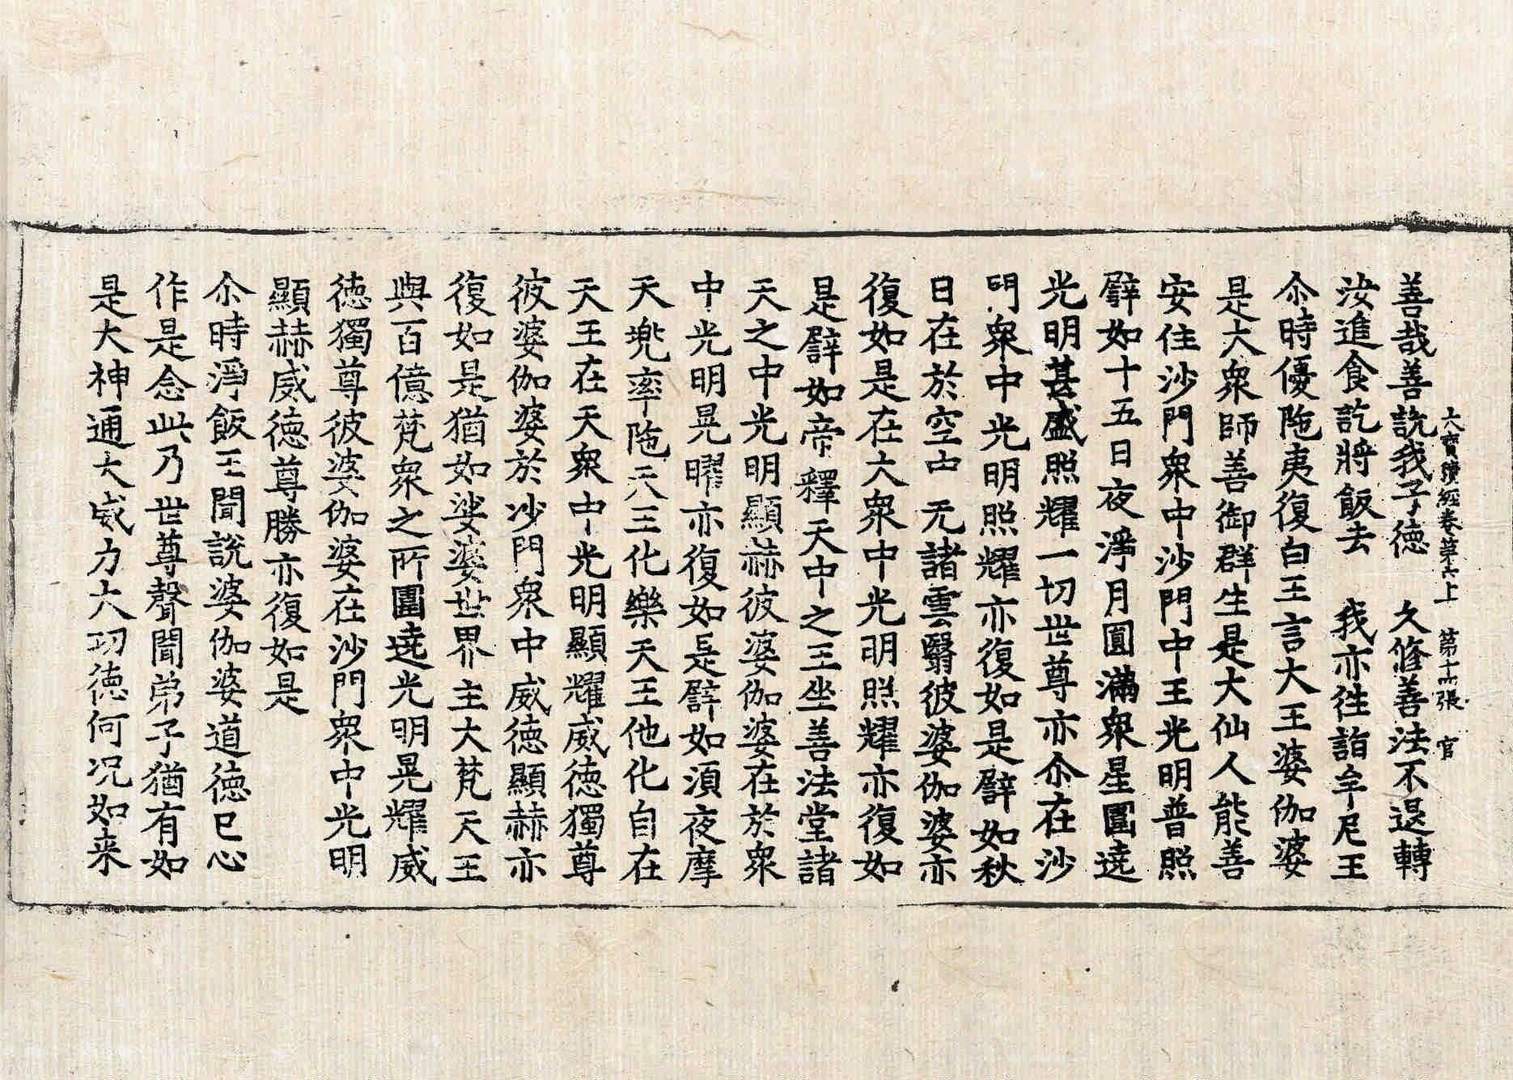 大寶積經卷第六上　第十六張　官
善哉善說我子德　久修善法不退轉
汝進食訖將飯去　我亦往詣牟尼王
尒時優陁夷復白王言大王婆伽婆
是大衆師善御群生是大仙人能善
安住沙門衆中沙門中王光明普照
譬如十五日夜淨月圓滿衆星圍遶
光明甚盛照耀一切世尊亦尒在沙
門衆中光明照耀亦復如是譬如秋
日在於空中无諸雲翳彼婆伽婆亦
復如是在大衆中光明照耀亦復如
是譬如帝釋天中之王坐善法堂諸
天之中光明顯赫彼婆伽婆在於衆
中光明晃曜亦復如是譬如湏夜摩
天兠率陁天王化樂天王他化自在
天王在天衆中光明顯耀威德獨尊
彼婆伽婆於沙門衆中威德顯赫亦
復如是猶如娑婆世界主大梵天王
與百億梵衆之所圍遶光明晃耀威
德獨尊彼婆伽婆在沙門衆中光明
顯赫威德尊勝亦復如是
尒時淨飯王聞說婆伽婆道德已心
作是念此乃世尊聲聞弟子猶有如
是大神通大威力大功德何况如来